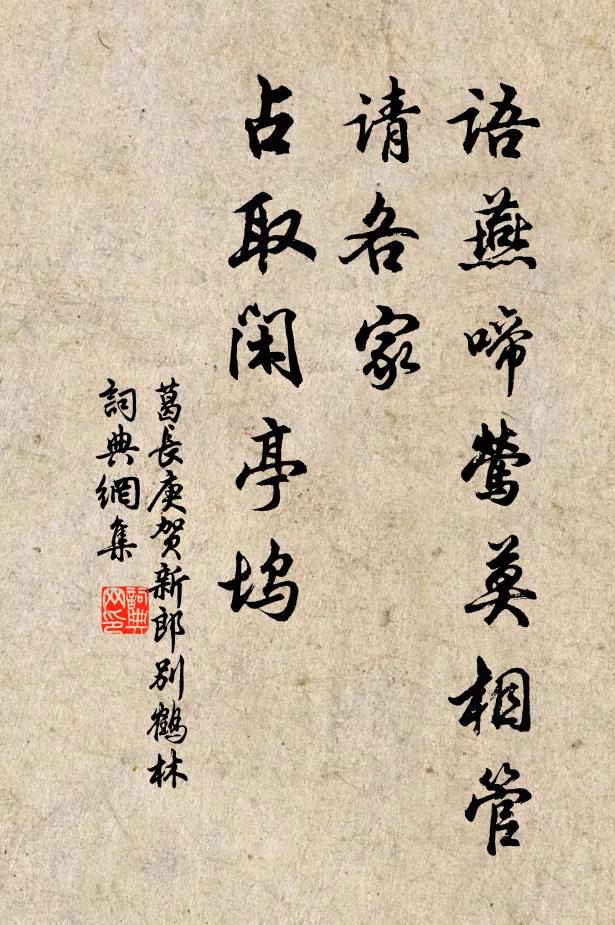 语燕啼莺莫相管
请各家
占取闲亭坞
葛长庚贺新郎别鹤林
词典網集
詞典网印